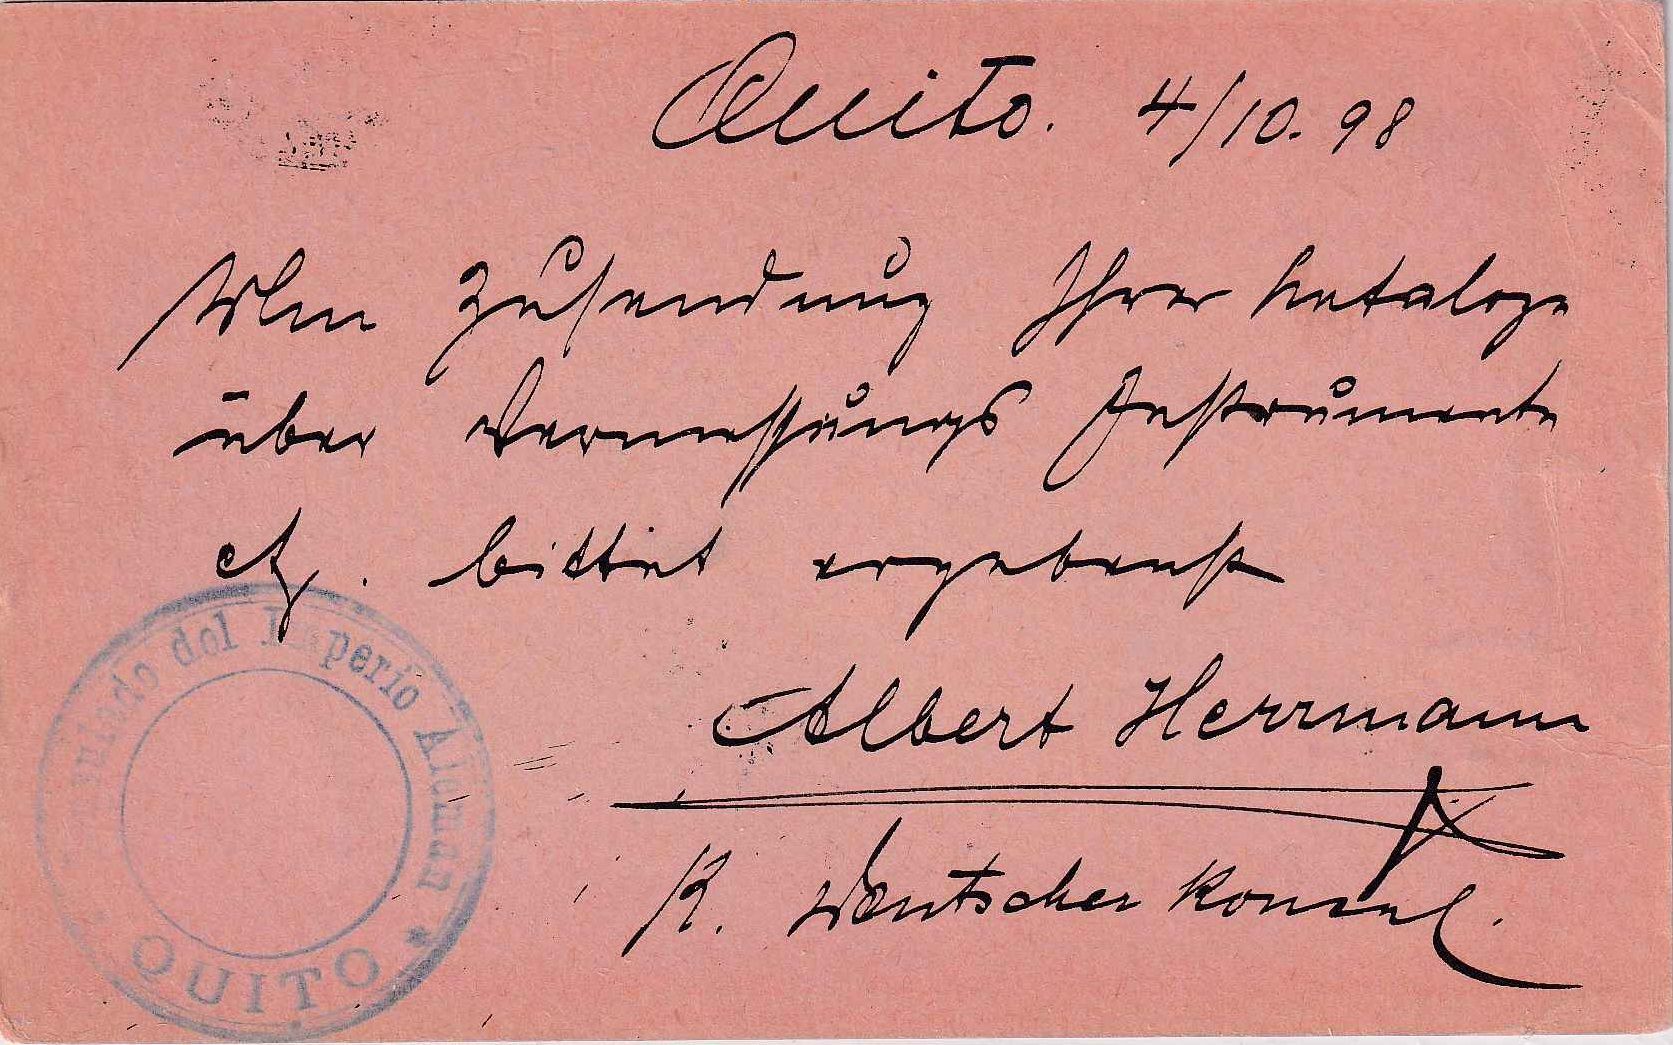 Quito. 4/10.98
Um Zusendung Ihrer Kataloge
über Vermessungs Instrumente
etz. bittet ergebenst
Albert Herrmann
K. Deutscher Konsul.
Consulado del Imperio Alemán
* QUITO *